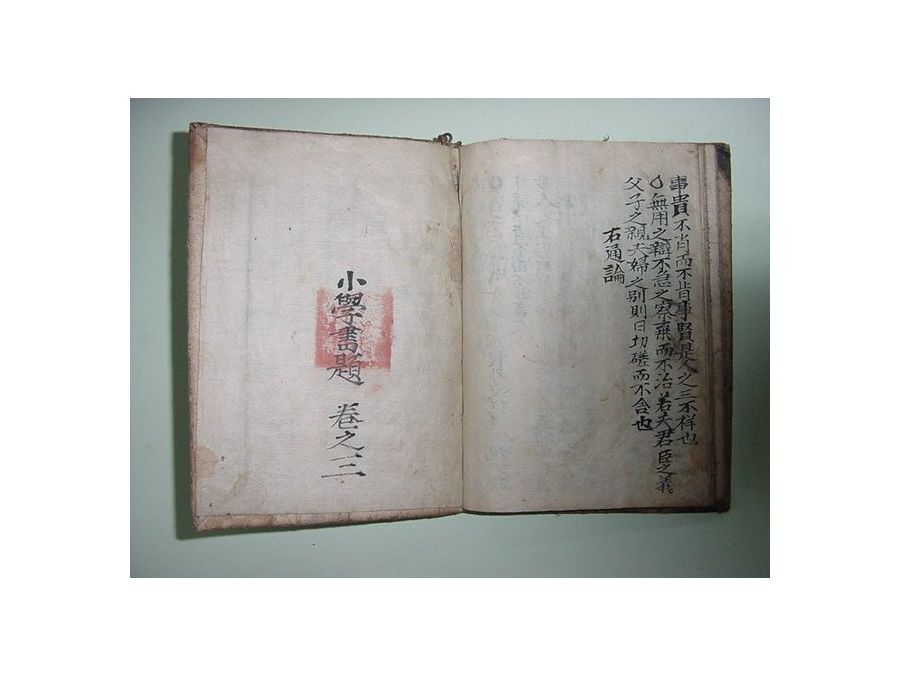 事貴不肖而不肯事賢是人之三不祥也
〇無用之辯不急之察棄而不治若夫君臣之義
父子之親夫婦之別則日切磋而不舍也
右通論
小學書題 卷之三